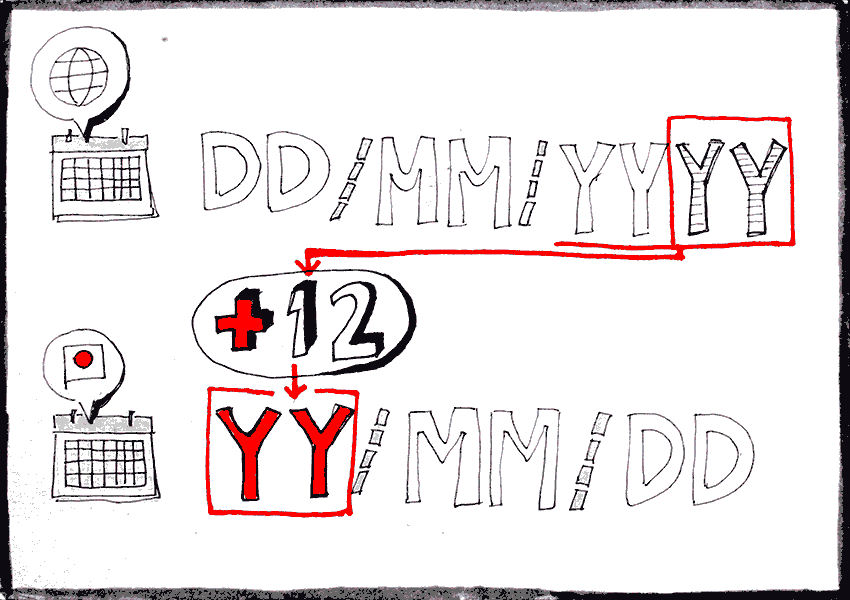 DD/MM/YYYY
+12
YY/MM/DD